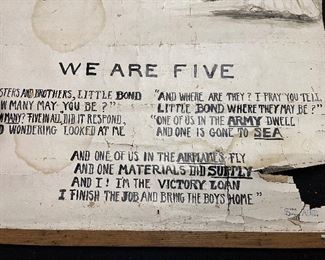 WE ARE FIVE
STERS AND BROTHERS, LITTLE BOND
W MANY MAY YOU BE?"
MANY? FIVE IN ALL, DID IT RESPOND,
D WONDERING LOOKED AT ME
"AND WHERE ARE THEY? I PRAY YOU TELL,
LITTLE BOND WHERE THEY MAY BE?"
"ONE OF US IN THE ARMY DWELL
AND ONE IS GONE TO SEA
AND ONE OF US IN THE AIRPLANES FLY
AND ONE MATERIALS DID SUPPLY
AND I! I'M THE VICTORY LOAN
I FINISH THE JOB AND BRING THE BOYS HOME"